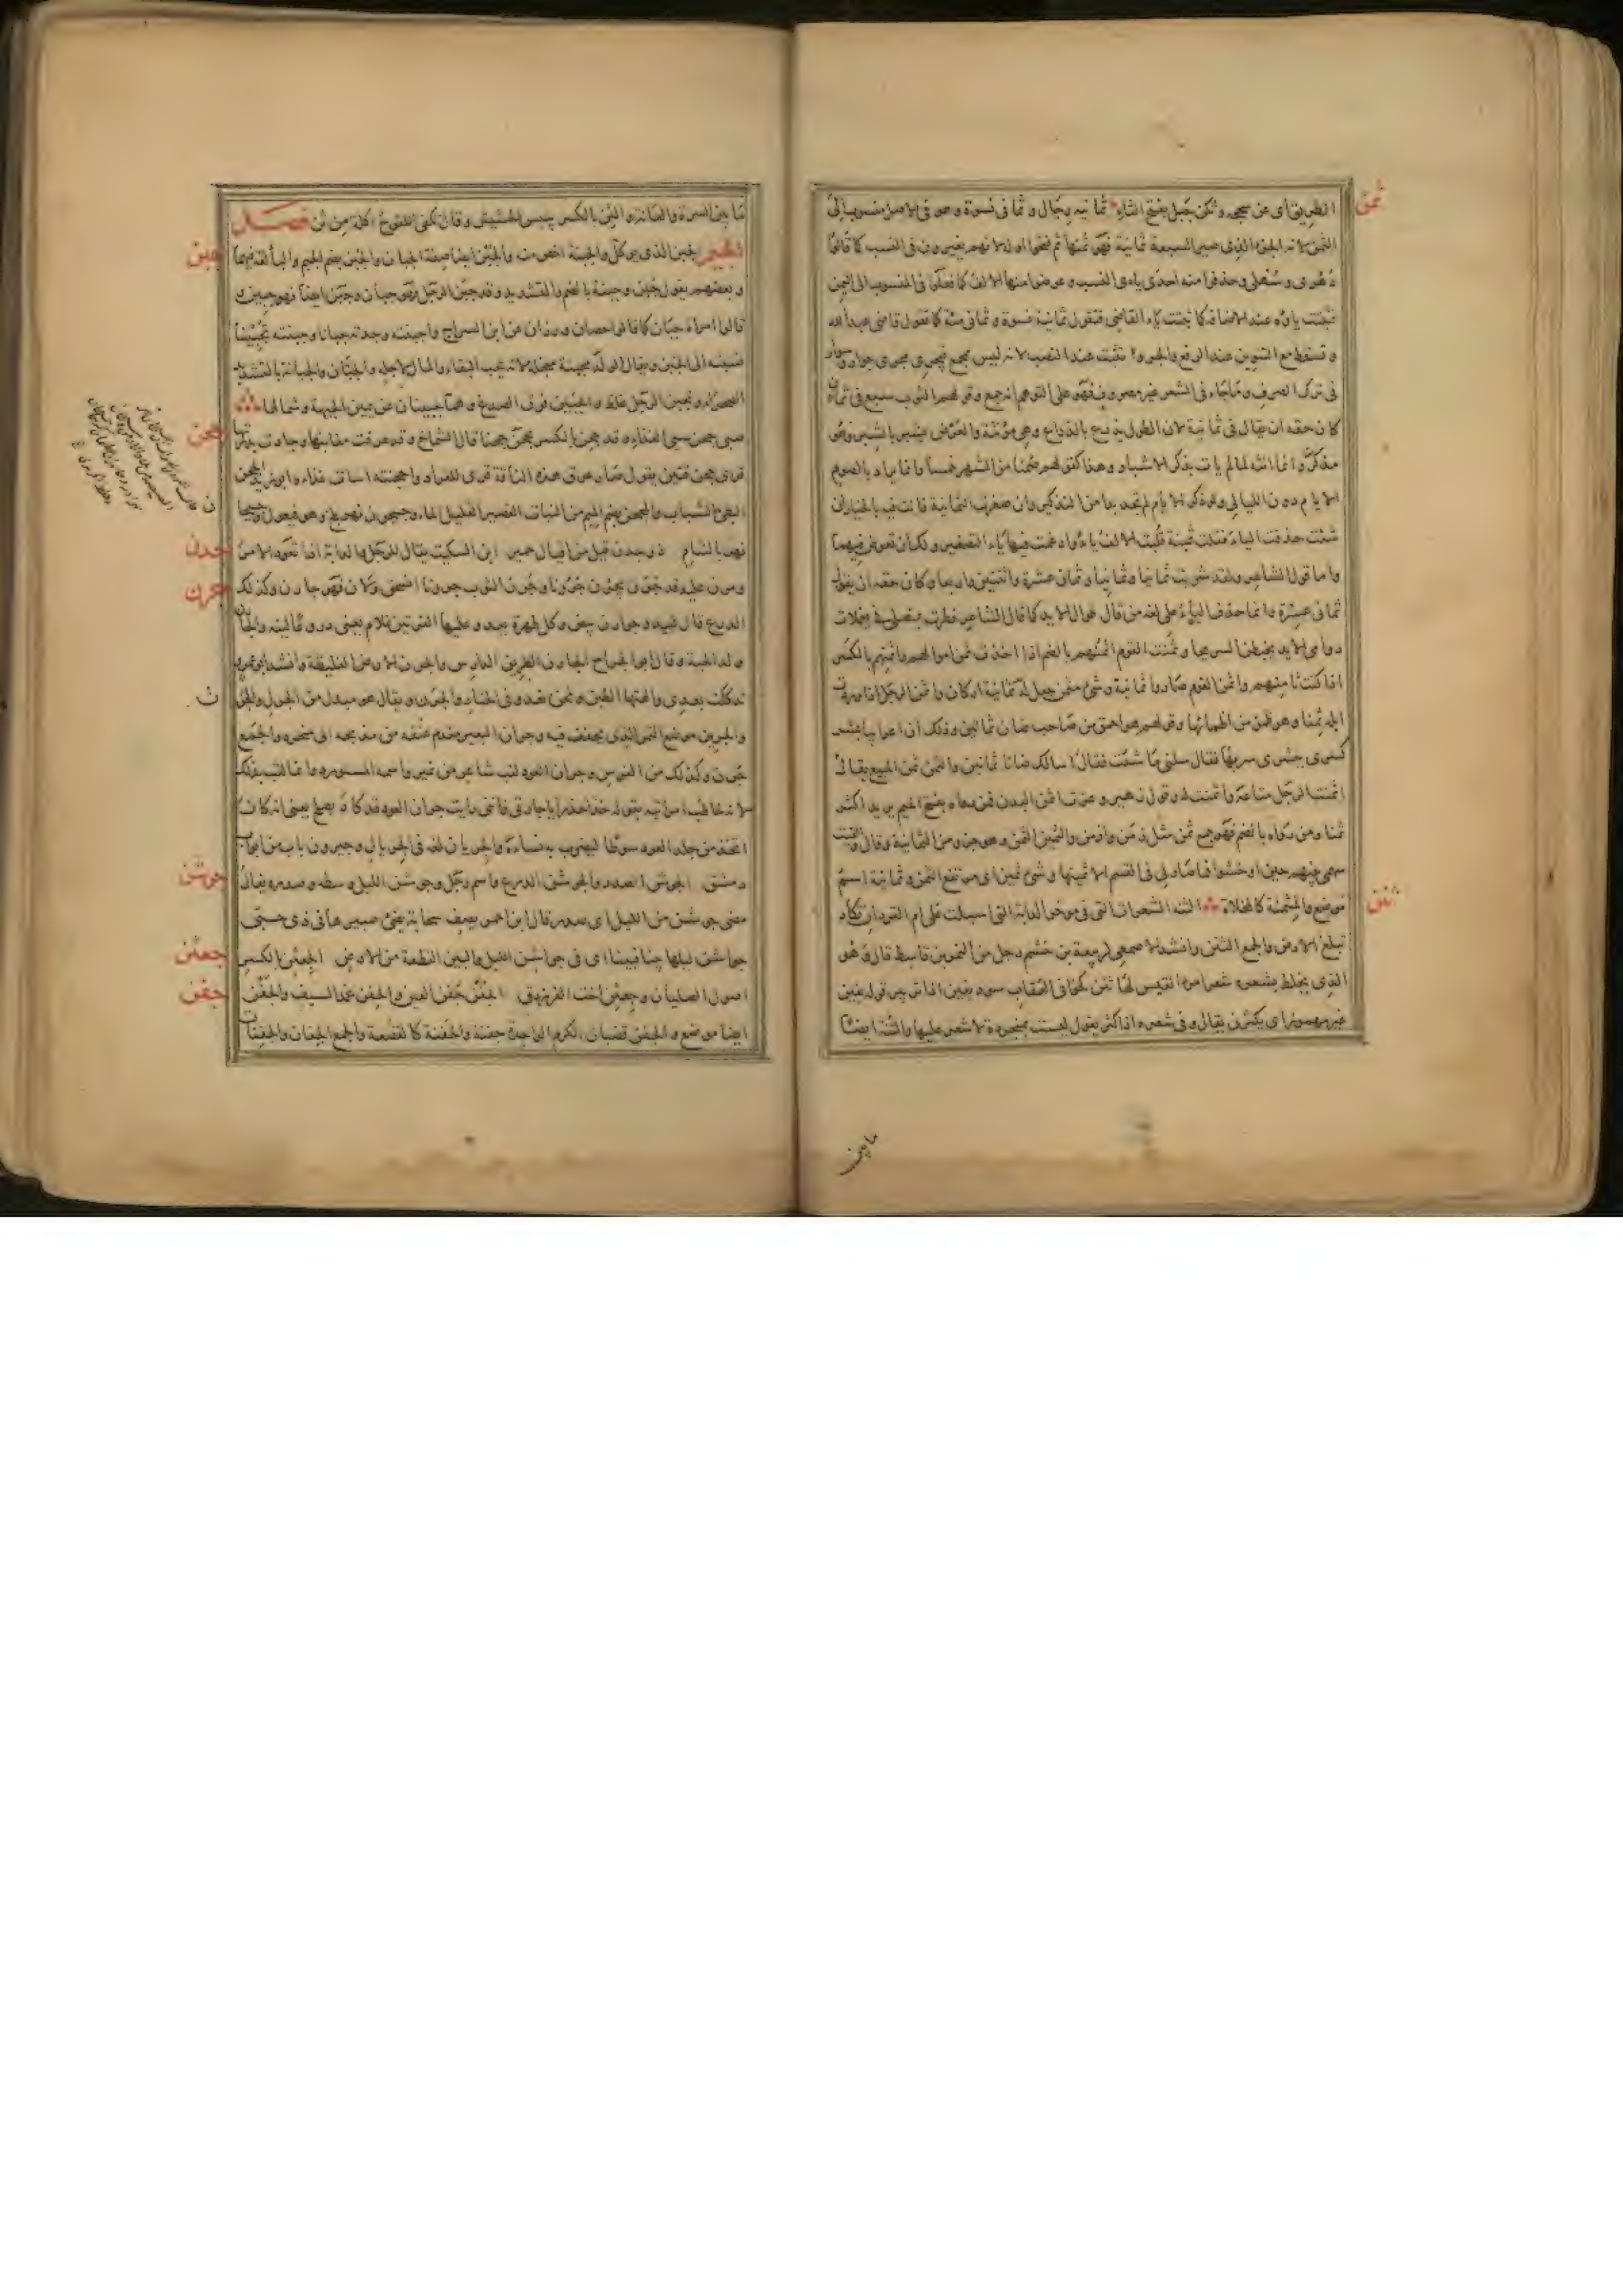 ثمن
الطريق اى عن سجحه وثكن جبل بفتح الثاء ثمانية رجال وثمانى نسوة وهو فى الاصل منسوب الى
الثمن لانه الجزء الذى صير السبعة ثمانية فهو ثمنها ثم فتحوا اوله لانهم يغيرون فى النسب كما قالوا
دهرى وسهلى وحذفوا منه احدى ياءى النسب وعوضوا منها الالف كما فعلوا فى المنسوب الى اليمن
فثبتت ياؤه عند الاضافة كما ثبتت ياء القاضى فتقول ثمانية نسوة وثمانى مئة كما تقول قاضى عبد الله
وتسقط مع التنوين عند الرفع والجر و تثبت عند النصب لانه ليس بجمع فيجرى مجرى جوار وسوار
فى ترك الصرف وما جاء فى الشعر غير مصروف فهو على التوهم انه جمع وقولهم الثوب سبع فى ثمان
كان حقه ان يقال فى ثمانية لان الطول يذرع بالذراع وهى مؤنثة والعرض يشبر بالشبر وهو
مذكر وانما انثه لما لم يات بذكر الاشبار وهذا كقولهم صمنا من الشهر خمسا وانما يراد بالصوم
الايام دون الليالى ولو ذكر الايام لم يجد بدا من التذكير وان صغرت الثمانية فانت فيه بالخيار ان
شئت حذفت الياء فقلت ثمينة قلبت الالف ياء وادغمت فيها ياء التصغير ولك ان تعوض فيهما
واما قول الشاعر ولقد شربت ثمانيا وثمانيا وثمان عشرة واثنتين واربعا وكان حقه ان يقول
ثمانى عشرة وانما حذف الياء على لغة من قال طوال الايد كما قال الشاعر فطرت بمنصلى فى يعملات
دوامى الايد يخبطن السريحا وثمنت القوم اثمنهم بالضم اذا اخذت ثمن اموالهم واثمنهم بالكسر
اذا كنت ثامنهم واثمن القوم صاروا ثمانية وشئ مثمن جعل له ثمانية اركان واثمن الرجل اذا وردت
ابله ثمنا وهو ظمء من اظمائها وقولهم هو احمق من صاحب ضان ثمانين وذلك ان اعرابيا بشر
كسرى ببشرى سر بها فقال سلنى ما شئت فقال اسالك ضانا ثمانين والثمن ثمن المبيع يقال
اثمنت الرجل متاعه واثمنت له وقول زهير وعزت اثمن البدن فمن رواه بفتح الميم يريد اكثر
ثمنا ومن رواه بالضم فهو جمع ثمن مثل زمن وازمن والثمين الثمن وهو جزء من الثمانية وقال والقيت
سهمى بينهم حين اوخشوا فما صار لى فى القسم الا ثمينها وشئ ثمين اى مرتفع الثمن وثمانية اسم
موضع والمثمنة كالمخلاة الثنة الشعرات التى فى مؤخر الدابة التى اسبلت على ام القردان تكاد
ثنن
تبلغ الارض والجمع الثنن وانشد الاصمعى لربيعة بن خشم رجل من النمر بن قاسط قال وهو
الذى يخلط بشعره شعر امرئ القيس لها ثنن كخوافى العقاب سود يفين اذا تزبئر قوله يفين
غير مهموز اى يكثرن يقال وفى شعره اذا كثر يقول ليست بمنجردة لا شعر عليها والثنة ايضا
ما بين
ما بين السرة والعانة والثن بالكسر يبيس الحشيش وقال تكفى اللقوح اكلة من ثن فصل
الجيم الجبن الذى يوكل والجبنة اخص منه والجبن ايضا صفة الجبان والجبن بضم الجيم والباء لغة فيهما
جبن
وبعضهم يقول جبن وجبنة بالضم والتشديد وقد جبن الرجل فهو جبان وجبن ايضا فهو جبين
قالوا امراة جبان كما قالوا حصان ورزان عن ابن السراج واجبنته وجدته جبانا وجبنته تجبينا
نسبته الى الجبن ويقال الولد مجبنة مبخلة لانه يحب البقاء والمال لاجله والجبان والجبانة بالتشديد
الصحراء وتجبن الرجل غلظ والجبين فوق الصدغ وهما جبينان عن يمين الجبهة وشمالها
صبى جحن سيئ الغذاء وقد جحن بالكسر يجحن جحنا قال الشماخ وقد عرقت مغابنها وجادت بدرتها
جحن
قرى جحن قتين يقول صار عرق هذه الناقة قرى للقراد واجحنته اساءت غذاءه ابو زيد الجحن
البطئ الشباب والمجحن بضم الميم من النبات القصير القليل الماء وجيحون نهر بلخ وهو فيعول وجيحان
نهر بالشام ذو جدن قيل من اقيال حمير ابن السكيت يقال للرجل والدابة اذا تعود الامر
جدن
ومرن عليه قد جرن يجرن جرونا وجرن الثوب جرونا انسحق ولان فهو جارن وكذلك
جرن
الدرع قال لبيد وجوارن بيض وكل طمرة يعدو عليها القرتين غلام يعنى دروعا لينة والجارن
ولد الحية وقال ابو الجراح الجارن الطريق الدارس والجرن الارض الغليظة وانشد ابو عمرو
تدكلت بعدى والهتها الطبن ونحن نعدو فى الخبار والجرن ويقال هو مبدل من الجرل والجرن
ن
والجرين موضع التمر الذى يجفف فيه وجران البعير مقدم عنقه من مذبحه الى منحره والجمع
جرن وكذلك من الفرس وجران العود لقب شاعر من نمير واسمه المستورد وانما لقب بذلك
لانه يخاطب امراتيه بقوله خذا حذرا يا جارتى فاننى رايت جران العود قد كاد يصلح يعنى انه كان
اتخذ من جلد العود سوطا ليضرب به نساءه والجريان لغة فى الجريال وجيرون باب من ابواب
دمشق الجوشن الصدر والجوشن الدرع واسم رجل وجوشن الليل وسطه وصدره يقال
جوشن
مضى جوشن من الليل اى صدر قال ابن احمر يصف سحابة يضئ صبيرها فى ذى حبى
جواشن ليلها بينا فبينا اى فى جواشن الليل والبين القطعة من الارض الجعثن بالكسر
جعثن
اصول الصليان وجعثن اخت الفرزدق الجفن جفن العين والجفن غمد السيف والجفن
جفن
ايضا موضع والجفن قضبان الكرم الواحدة جفنة والجفنة كالقصعة والجمع الجفان والجفنات